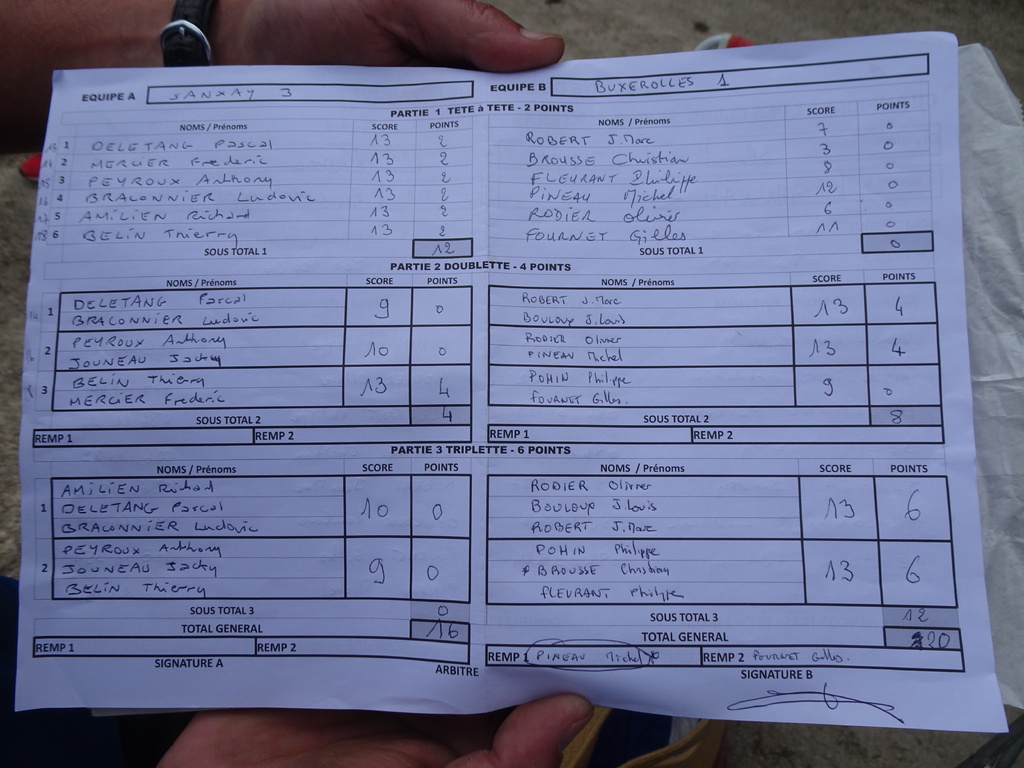 EQUIPE A SANXAY 3 EQUIPE B BUXEROLLES 1
PARTIE 1 TETE à TETE - 2 POINTS
NOMS / Prénoms SCORE POINTS NOMS / Prénoms SCORE POINTS
1 DELETANG Pascal 13 2 ROBERT J.Marc 7 0
2 MERCIER Frederic 13 2 BROUSSE Christian 3 0
3 PEYROUX Anthony 13 2 FLEURANT Philippe 8 0
4 BRACONNIER Ludovic 13 2 PINEAU Michel 12 0
5 AMILIEN Richard 13 2 RODIER Olivier 6 0
6 BELIN Thierry 13 2 FOURNET Gilles 11 0
SOUS TOTAL 1 12 SOUS TOTAL 1 0
PARTIE 2 DOUBLETTE - 4 POINTS
NOMS / Prénoms SCORE POINTS NOMS / Prénoms SCORE POINTS
1 DELETANG Pascal 9 0 ROBERT J.Marc 13 4
BRACONNIER Ludovic BOULOUX J.Louis
2 PEYROUX Anthony 10 0 RODIER Olivier 13 4
JOUNEAU Jacky PINEAU Michel
3 BELIN Thierry 13 4 POHIN Philippe 9 0
MERCIER Frederic FOURNET Gilles.
SOUS TOTAL 2 4 SOUS TOTAL 2 8
REMP 1 REMP 2 REMP 1 REMP 2
PARTIE 3 TRIPLETTE - 6 POINTS
NOMS / Prénoms SCORE POINTS NOMS / Prénoms SCORE POINTS
AMILIEN Richard RODIER Olivier
1 DELETANG Pascal 10 0 BOULOUX J.Louis 13 6
BRACONNIER Ludovic ROBERT J.Marc
PEYROUX Anthony POHIN Philippe
2 JOUNEAU Jacky 9 0 * BROUSSE Christian 13 6
BELIN Thierry FLEURANT Philippe
SOUS TOTAL 3 0 SOUS TOTAL 3 12
TOTAL GENERAL 16 TOTAL GENERAL 20
REMP 1 REMP 2 REMP 1 PINEAU Michel * REMP 2 FOURNET Gilles.
SIGNATURE A ARBITRE SIGNATURE B